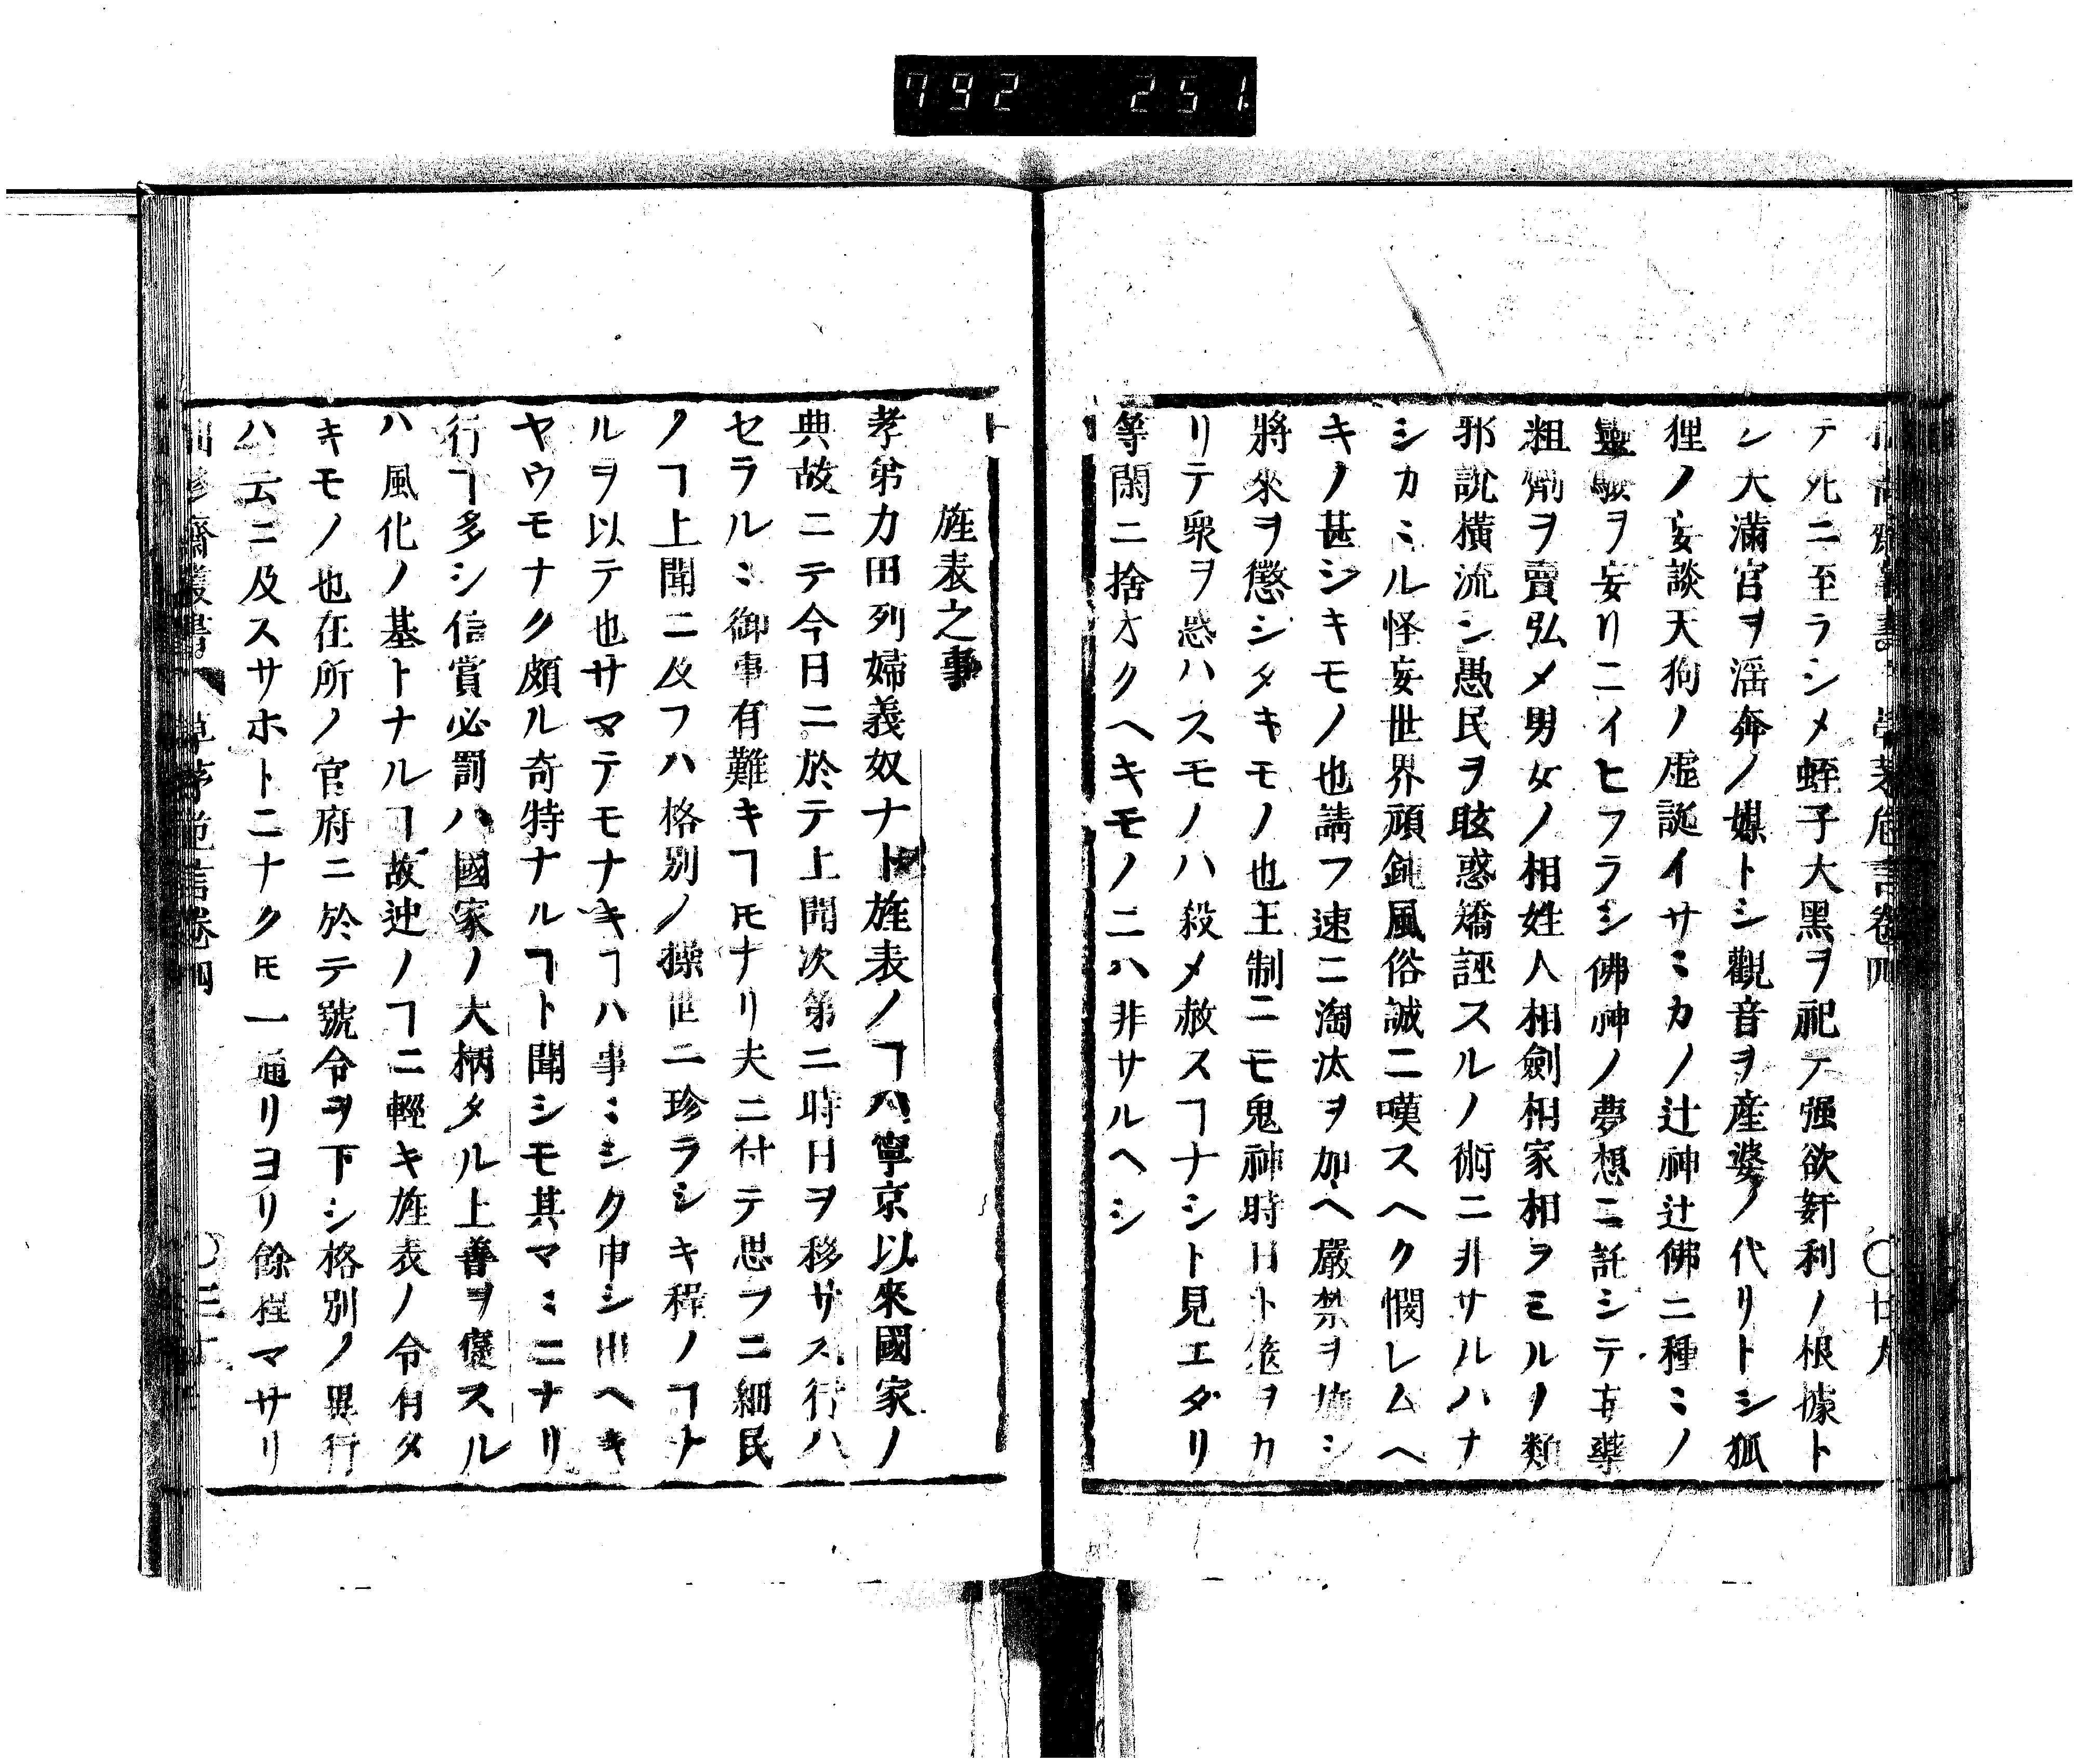 792 251
テ死ニ至ラシメ蛭子大黑ヲ祀テ强欲奸利ノ根據ト
シ大滿宮ヲ淫奔ノ媒トシ觀音ヲ産婆ノ代リトシ狐
狸ノ妄談天狗ノ虛誕イサミカノ辻神辻佛ニ種ミノ
靈驗ヲ妄リニイヒフラシ佛神ノ夢想ニ託シテ賣藥
粗劑ヲ賣弘メ男女ノ相姓人相劍相家相ヲモルノ類
邪說橫流シ愚民ヲ眩惑矯誣スルノ術ニ非サルハナ
シカミル怪妄世界頑鈍風俗誠ニ嘆スヘク憫レムヘ
キノ甚シキモノ也請フ速ニ淘汰ヲ加ヘ嚴禁ヲ施シ
將來ヲ懲シタキモノ也王制ニモ鬼神時日ト筮ヲカ
リテ衆ヲ惑ハスモノハ殺メ赦スヿナシト見エタリ
等閑ニ捨オクヘキモノニハ非サルヘシ
旌表之事
孝弟力田列婦義奴ナト旌表ノヿハ寧京以來國家ノ
典故ニテ今日ニ於テ上聞次第ニ時日ヲ移サス行ハ
セラルミ御事有難キヿ𪜈ナリ夫ニ付テ思フニ細民
ノヿ上聞ニ及フハ格別ノ操世ニ珍ラシキ程ノヿナ
ルヲ以テ也サマテモナキヿハ事ミシク申シ出ヘキ
ヤウモナク頗ル奇特ナルヿト聞シモ其マミニナリ
行ヿ多シ信賞必罰ハ國家ノ大柄タル上善ヲ襃スル
ハ風化ノ基トナルヿ故迚ノヿニ輕キ旌表ノ令有タ
キモノ也在所ノ官府ニ於テ號令ヲ下シ格別ノ異行
ハ云ニ及スサホトニナク𪜈一通リヨリ餘程マサリ
草茅危言卷四